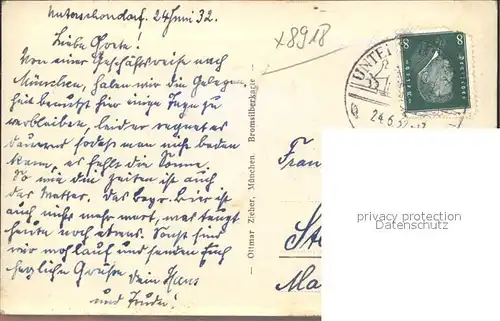 Unterschondorf. 24 Juni 32.
Liebe Grete!
Von einer Geschäftsreise nach
München, haben wir die Gelegen-
heit benutzt hier einige Tage zu
verbleiben, leider regnet es
dauernd sodaß man nicht baden
kann, es fehlt die Sonne.
So wie die Zeiten ist auch
das Wetter. Das bayr. Bier ist
auch nichts mehr wert, was taugt
heute noch etwas. Sonst sind
wir wohlauf und senden Euch
herzliche Grüße Dein Hans
und Trude!
x8918
— Ottmar Zieher, München. Bromsilberkarte —
UNTE
24.6.32
8 8
Deutsches Reich
Fran
St
Ma
privacy protection
Datenschutz